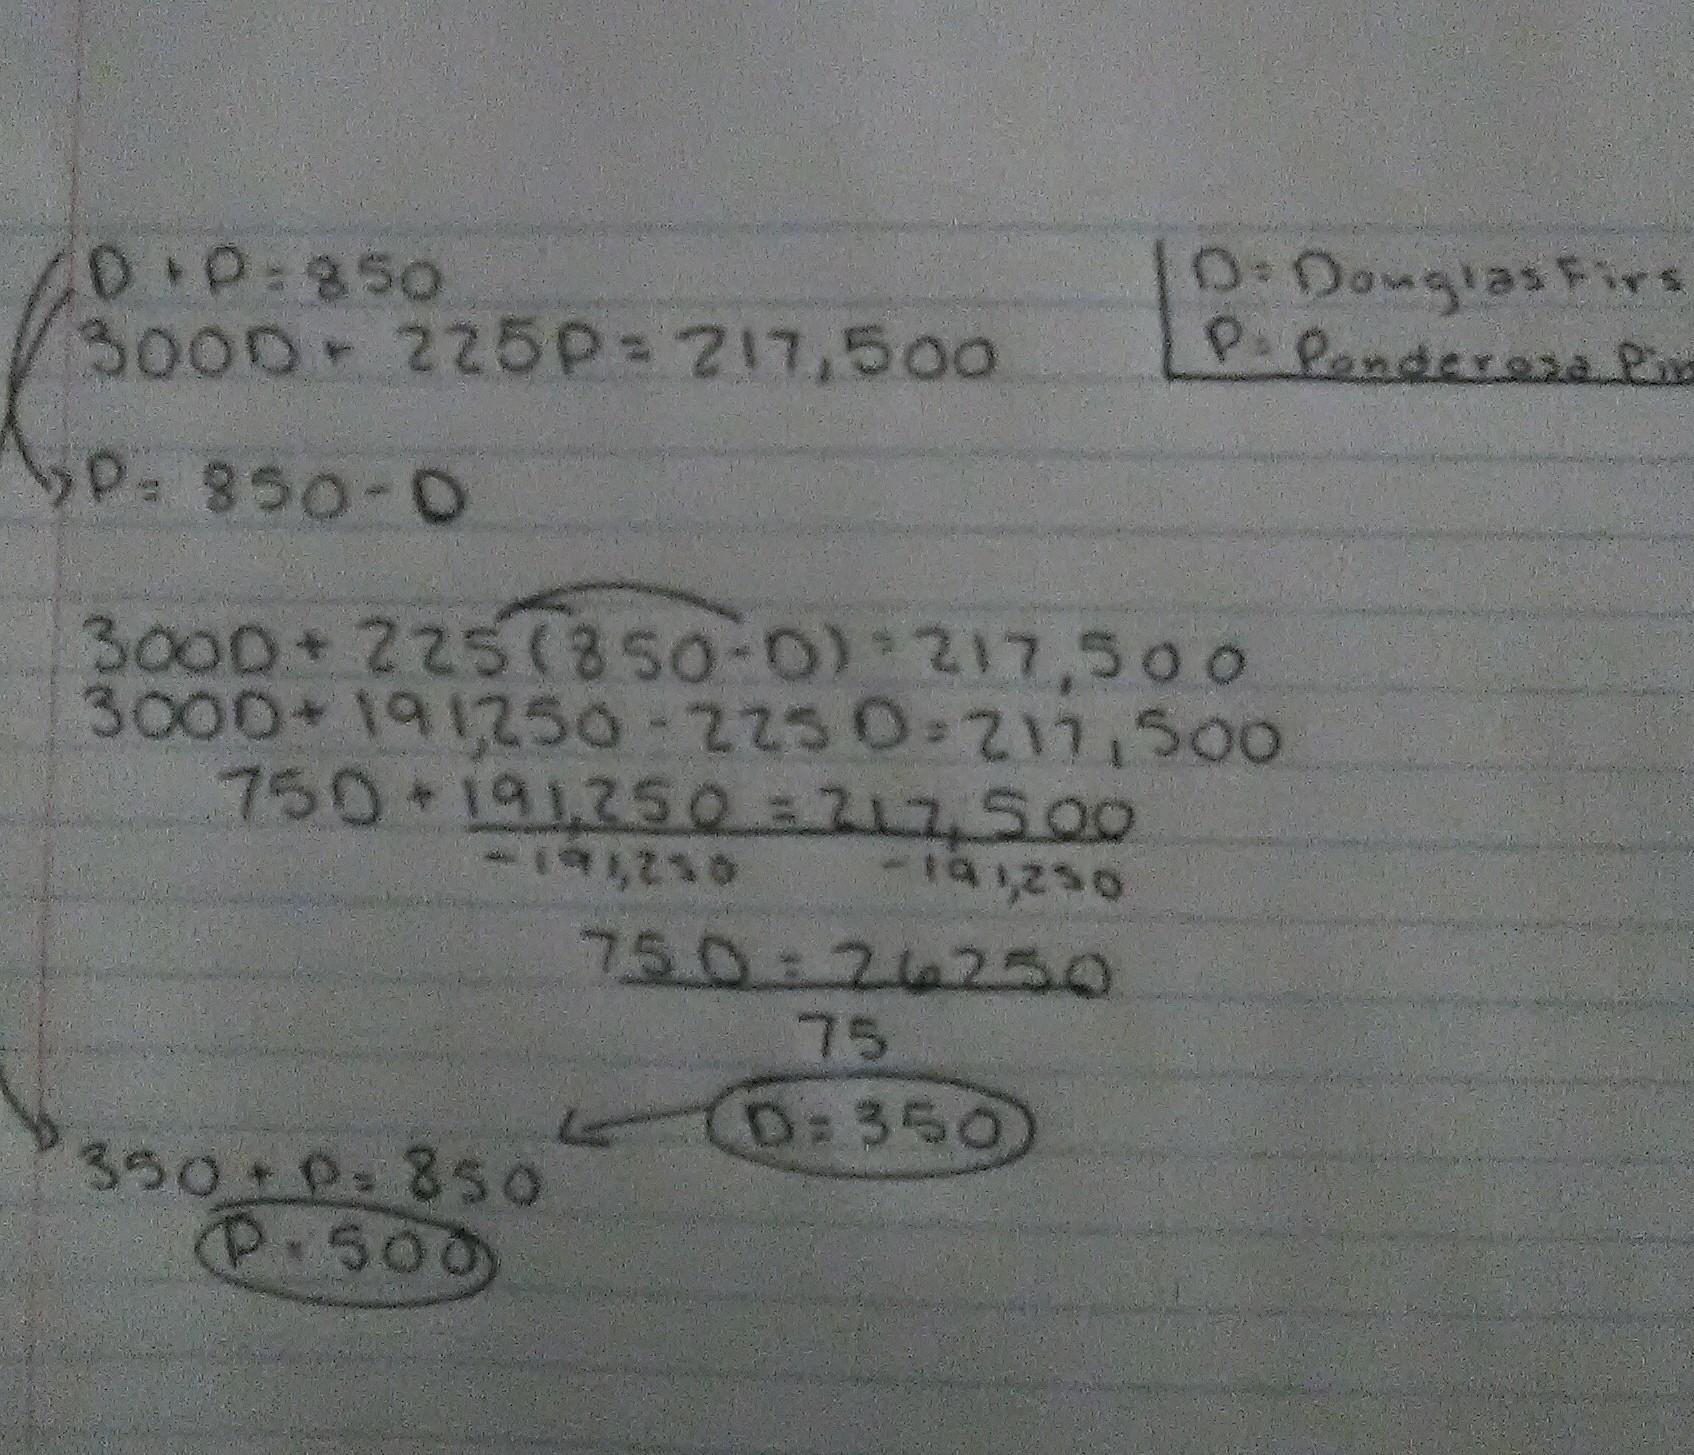 D + P = 850
300D + 225P = 217,500
D = Douglas Firs
P = Ponderosa
P = 850 - D
300D + 225(850 - D) = 217,500
300D + 191,250 - 225D = 217,500
75D + 191,250 = 217,500
-191,250 -191,250
75D = 26250
75
D = 350
350 + P = 850
P = 500